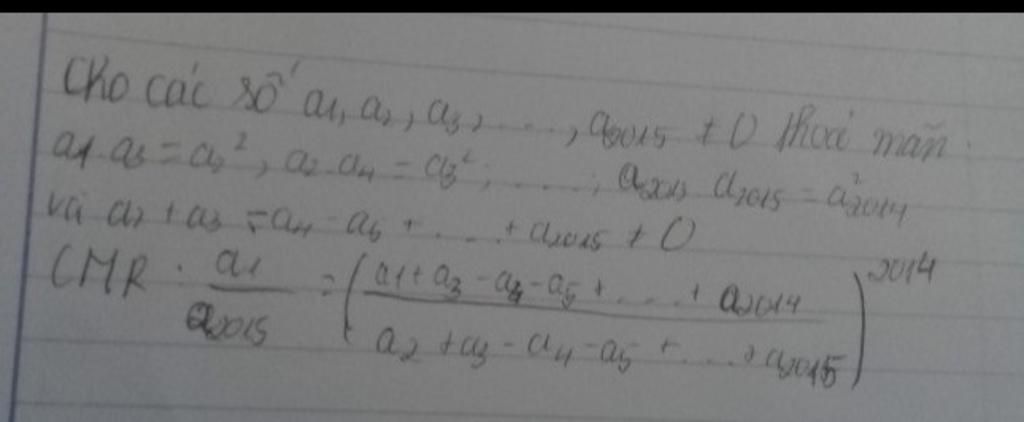 Cho các số a1, a2, a3, ...., a2015 ≠ 0 thoả mãn.
a1 a3 = a2², a2 a4 = a3², ....; a2013 a2015 = a²2014
và a2 + a3 - a4 - a5 + .... + a2015 ≠ 0
CMR. a1/a2015 = (a1 + a3 - a4 - a5 + .... + a2014 / a2 + a3 - a4 - a5 + .... + a2015)^2014